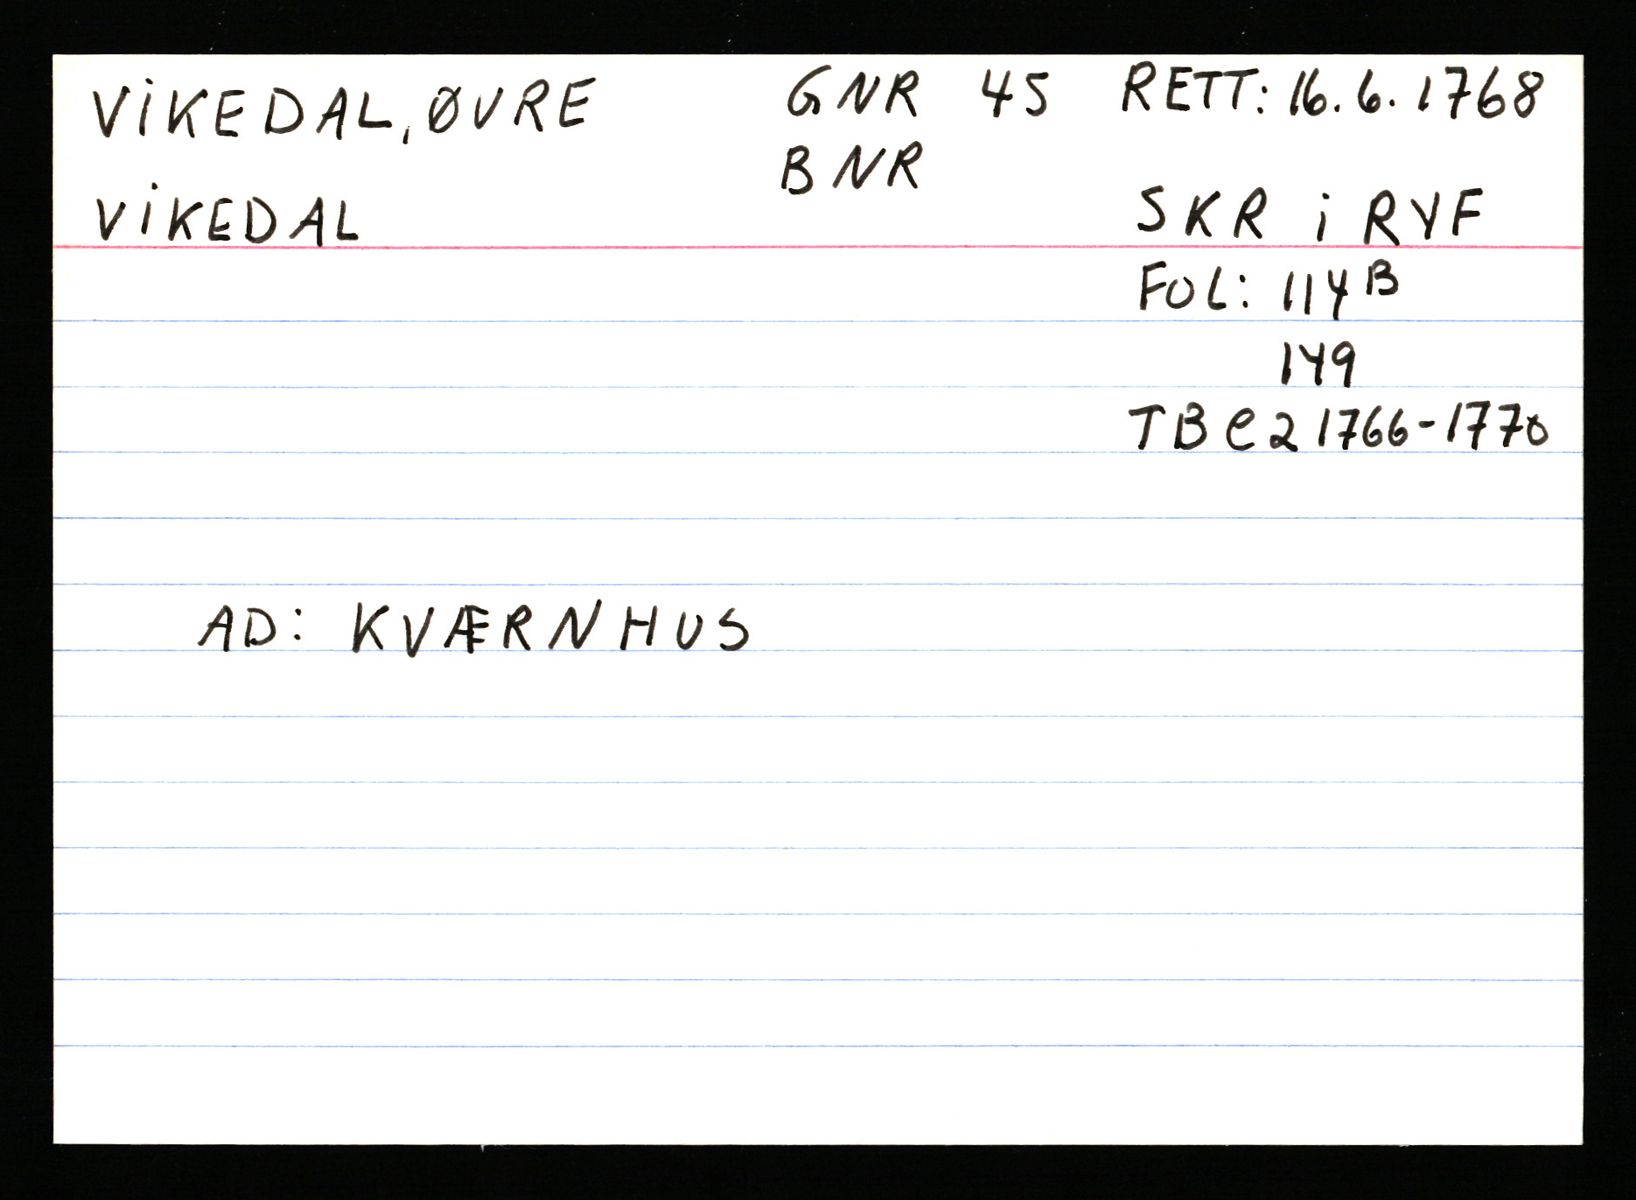 VIKEDAL, ØVRE GNR 45 RETT: 16.6.1768
BNR
VIKEDAL SKR i RYF
FOL: 114B
149
TB C2 1766-1770
AD: KVÆRNHUS